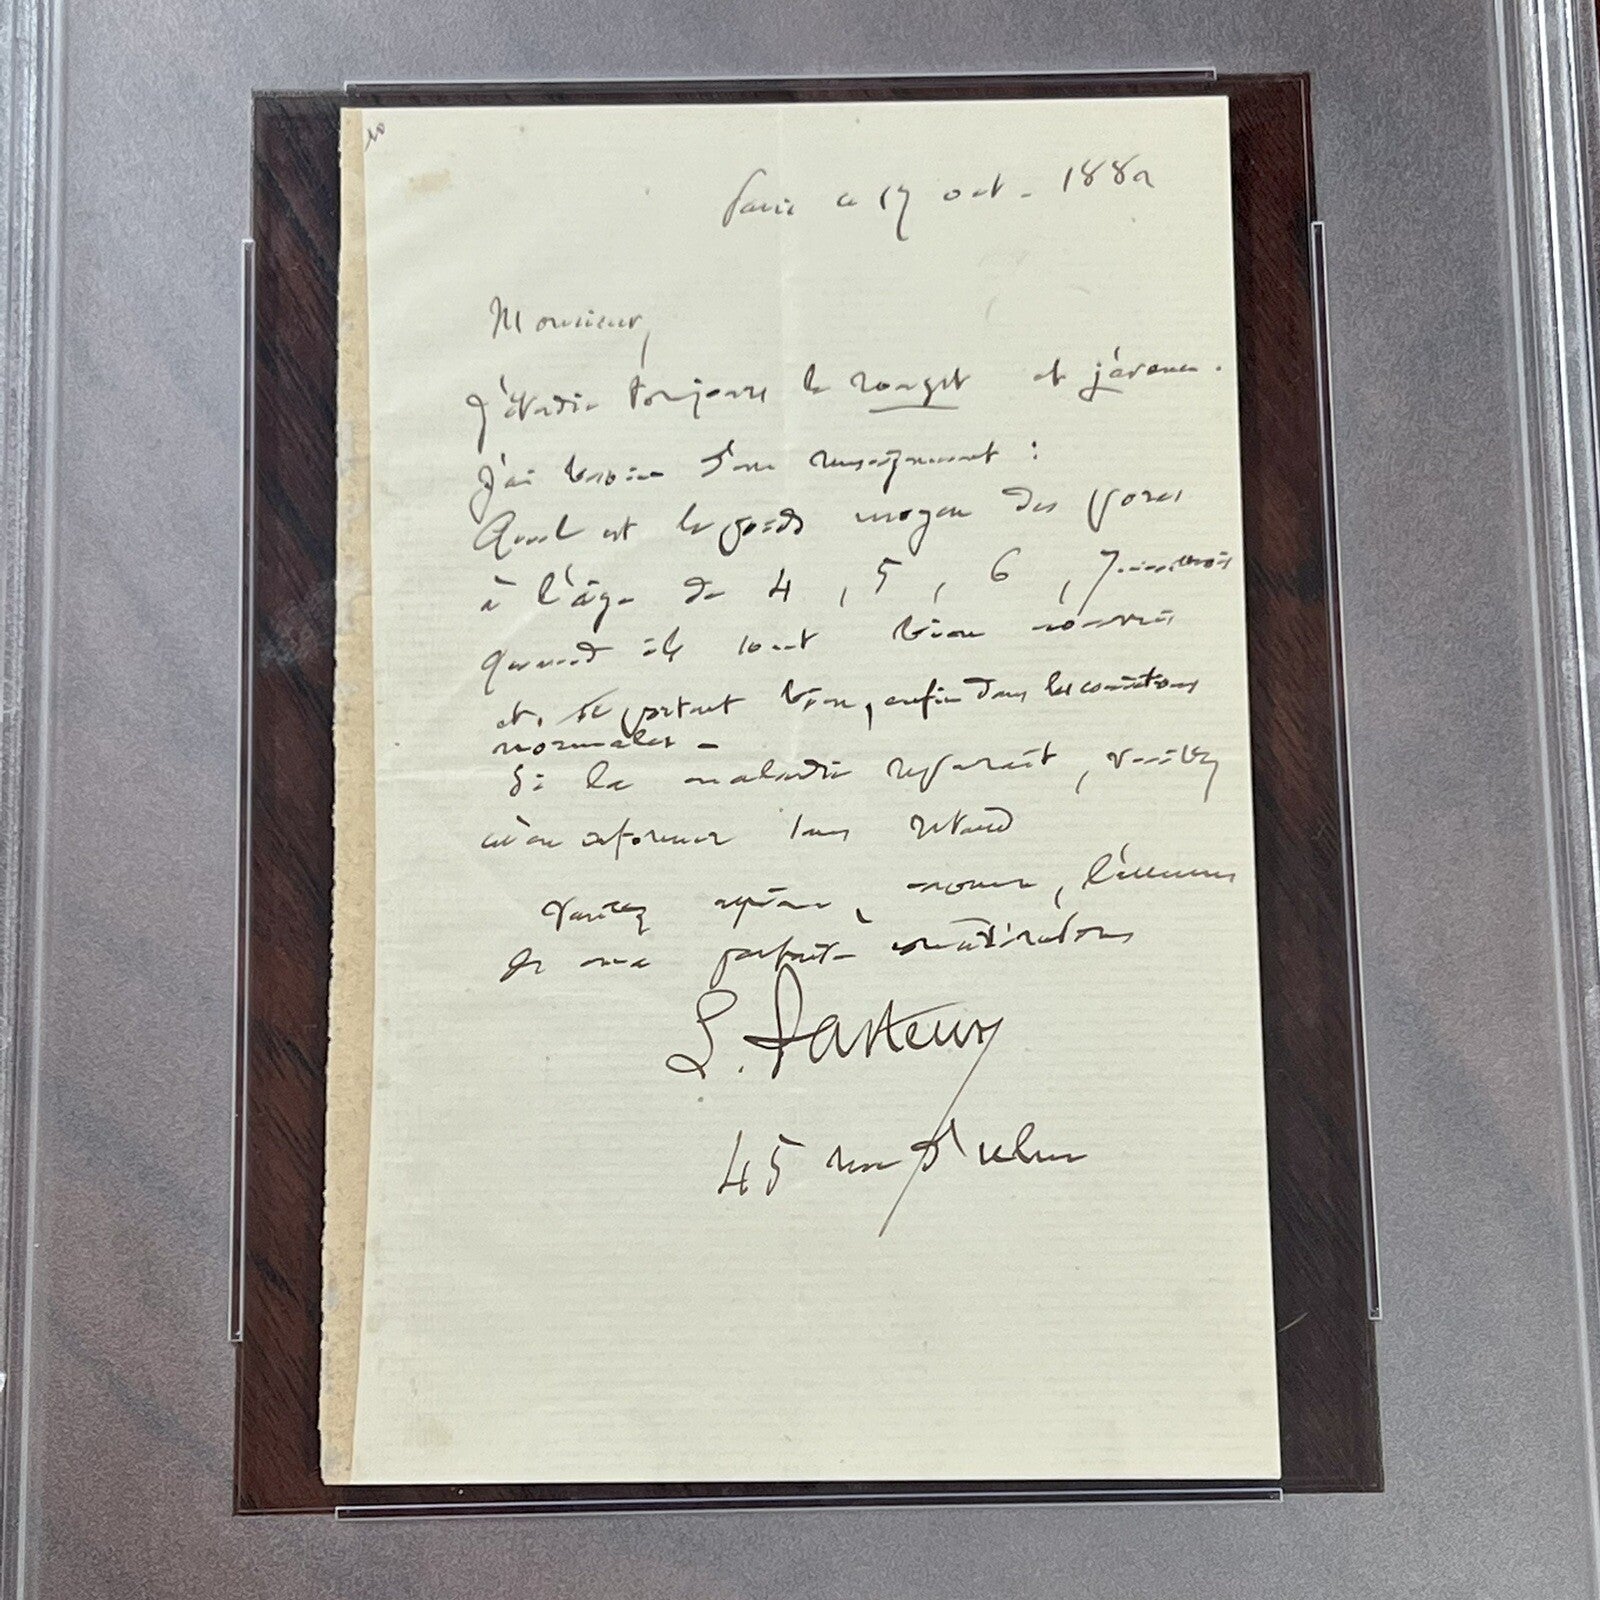 Paris ce 17 oct. 1882
Monsieur,
J'étudie toujours le rouget et j'avance.
J'ai besoin d'un renseignement :
Quel est le poids moyen des porcs
à l'âge de 4, 5, 6, 7 mois
quand ils sont bien nourris
et se portent bien, enfin dans les conditions
normales -
Si la maladie reparaît, veuillez
m'en informer sans retard
Veuillez agréer, , l'assurance
de ma parfaite considération
L. Pasteur
45 rue d'Ulm